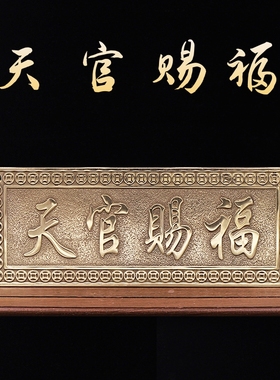 天官赐福
天官賜福